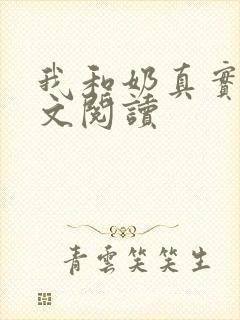 我和奶真實
文閱讀
青雲笑笑生